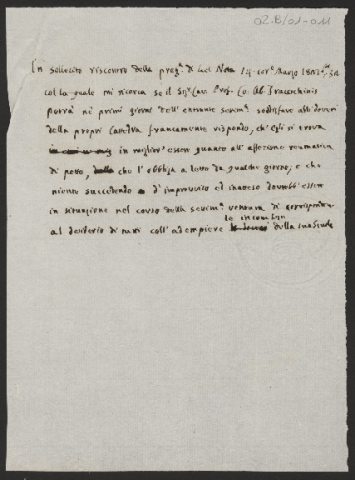 In sollecito riscontro della preg.ª di Lei Nota 14 cor.e Marzo
colla quale mi ricerca se il Sig.r Cav. Prof. Co. Ab.
potrà ne' primi giorni dell'entrante settim.ª soddisfare alli doveri
della propria Cattedra, francamente rispondo, ch'egli si trova
in miglior essere quanto all'affezione reumatica
di petto, che l'obbliga a letto da qualche giorno, e che
niente succedendo d'improvviso ed inatteso dovrebb'essere
in situazione nel corso della settim.ª ventura di corrispondere
le incombenze
al desiderio di tutti coll'adempiere della sua Scuola